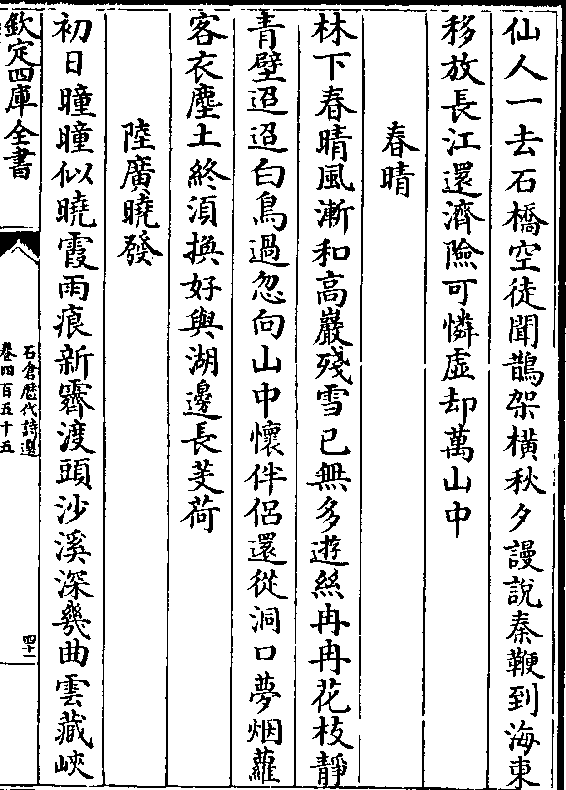 仙人一去石橋空徒聞鵲架橫秋夕謾說秦鞭到海東
移放長江還濟險可憐虛却萬山中
春晴
林下春晴風漸和高巖殘雪已無多遊絲冉冉花枝靜
青壁迢迢白鳥過忽向山中懷伴侶還從洞口夢烟蘿
客衣塵土終須換好與湖邊長芰荷
陸廣曉發
初日曈曈似曉霞雨痕新霽渡頭沙溪深幾曲雲藏峽
欽定四庫全書
石倉歷代詩選
卷四百五十五
四十一